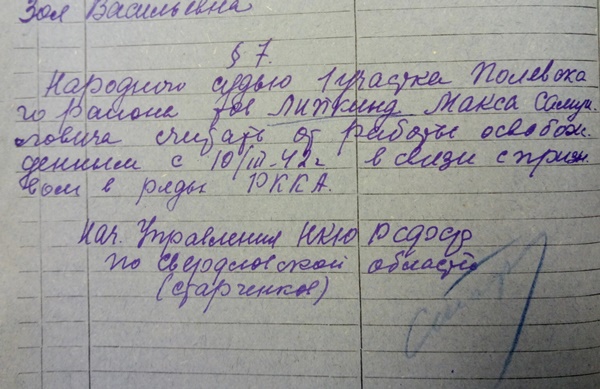 Зоя Васильевна
§ 7.
Народного судью 1 участка Полевска
го района тов Липкинд Макса Самуи
ловича считать от работы освобож
денным с 10/III-42 г в связи с призы
вом в ряды РККА.
Нач. Управления НКЮ РСФСР
по Свердловской области
(Старченков)